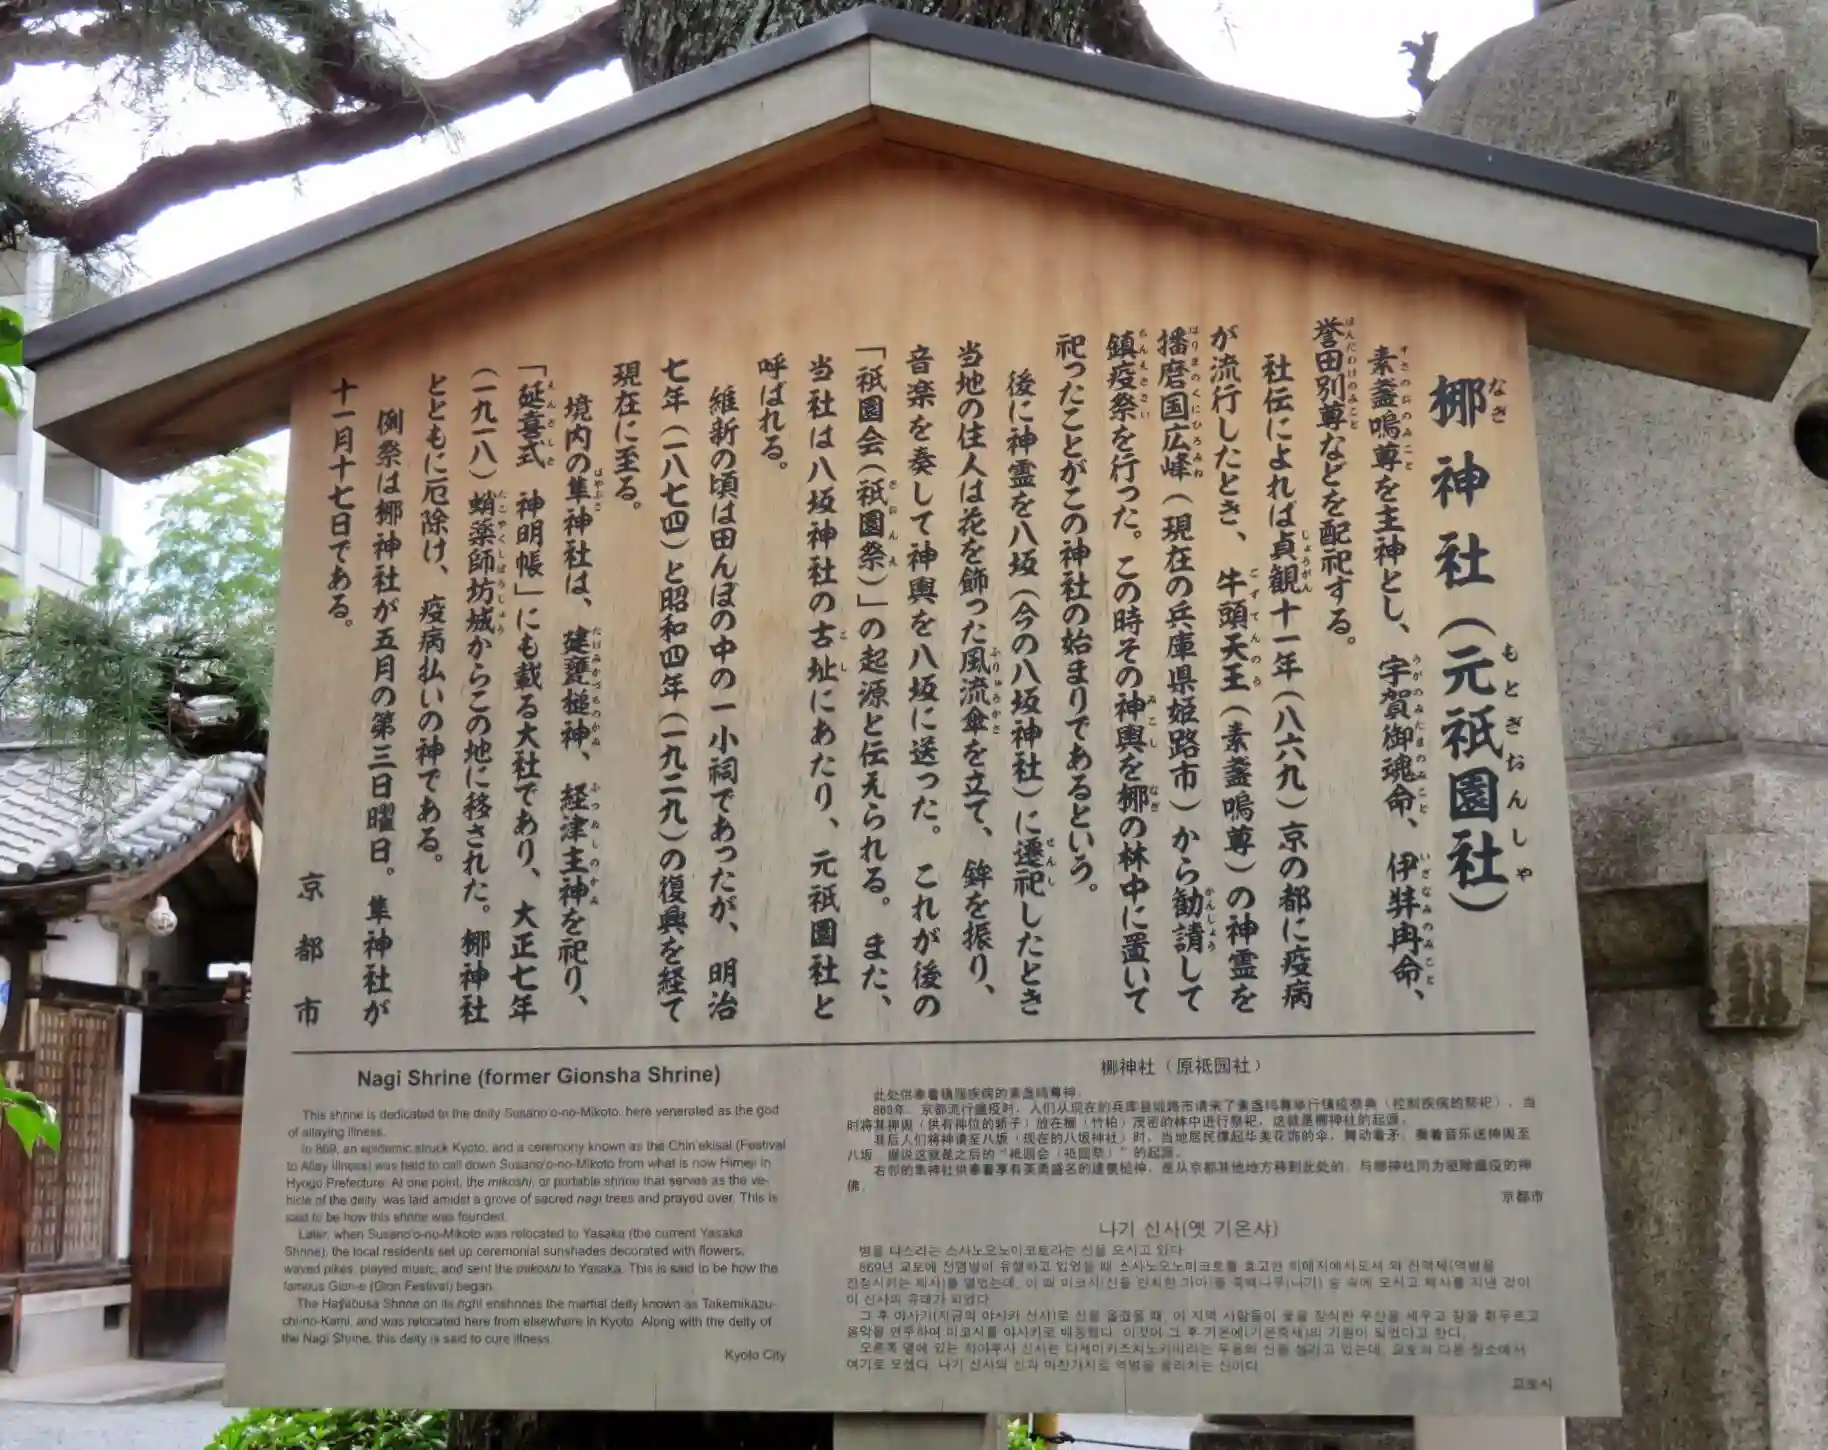 梛神社（元祇園社）
素盞嗚尊を主神とし、宇賀御魂命、伊弉冉命、
誉田別尊などを配祀する。
社伝によれば貞観十一年（八六九）京の都に疫病
が流行したとき、牛頭天王（素盞嗚尊）の神霊を
播磨国広峰（現在の兵庫県姫路市）から勧請して
鎮疫祭を行った。この時その神輿を梛の林中に置いて
祀ったことがこの神社の始まりであるという。
後に神霊を八坂（今の八坂神社）に遷祀したとき
当地の住人は花を飾った風流傘を立て、鉾を振り、
音楽を奏して神輿を八坂に送った。これが後の
「祇園会（祇園祭）」の起源と伝えられる。また、
当社は八坂神社の古址にあたり、元祇園社と
呼ばれる。
維新の頃は田んぼの中の一小祠であったが、明治
七年（一八七四）と昭和四年（一九二九）の復興を経て
現在に至る。
境内の隼神社は、建甕槌神、経津主神を祀り、
「延喜式 神明帳」にも載る大社であり、大正七年
（一九一八）蛸薬師坊城からこの地に移された。梛神社
とともに厄除け、疫病払いの神である。
例祭は梛神社が五月の第三日曜日。隼神社が
十一月十七日である。
京都市
Nagi Shrine (former Gionsha Shrine)
This shrine is dedicated to the deity Susano'o-no-Mikoto, here venerated as the god
of allaying illness.
In 869, an epidemic struck Kyoto, and a ceremony known as the Chin'ekisai (Festival
to Allay Illness) was held to call down Susano'o-no-Mikoto from what is now Himeji in
Hyogo Prefecture. At one point, the mikoshi, or portable shrine that serves as the ve-
hicle of the deity, was laid amidst a grove of sacred nagi trees and prayed over. This is
said to be how this shrine was founded.
Later, when Susano'o-no-Mikoto was relocated to Yasaka (the current Yasaka
Shrine), the local residents set up ceremonial sunshades decorated with flowers,
waved pikes, played music, and sent the mikoshi to Yasaka. This is said to be how the
famous Gion-e (Gion Festival) began.
The Hayabusa Shrine on its right enshrines the martial deity known as Takemikazu-
chi-no-Kami, and was relocated here from elsewhere in Kyoto. Along with the deity of
the Nagi Shrine, this deity is said to cure illness.
Kyoto City
梛神社（原祗园社）
此处供奉着镇服疾病的素盏呜尊神。
869年，京都流行瘟疫时，人们从现在的兵库县姬路市请来了素盏呜尊举行镇疫祭典（控制疾病的祭祀），当
时将其神舆（供有神位的轿子）放在梛（竹柏）茂密的林中进行祭祀，这就是梛神社的起源。
其后人们将神请至八坂（现在的八坂神社）时，当地居民撑起华美花饰的伞，舞动着矛，奏着音乐送神舆至
八坂。据说这就是之后的“祗园会（祗园祭）”的起源。
右邻的隼神社供奉着享有英勇盛名的建甕槌神，是从京都其他地方移到此处的，与梛神社同为驱除瘟疫的神
佛。
京都市
나기 신사(옛 기온샤)
병을 다스리는 스사노오노미코토라는 신을 모시고 있다.
869년 교토에 전염병이 유행하고 있었을 때 스사노오노미코토를 효고현 히메지에서 모셔 와 진역제(역병을
진정시키는 제사)를 열었는데, 이 때 미코시(신을 안치한 가마)를 죽백나무(나기) 숲 속에 모시고 제사를 지낸 것이
이 신사의 유래가 되었다.
그 후 야사카(지금의 야사카 신사)로 신을 옮겼을 때, 이 지역 사람들이 꽃을 장식한 우산을 세우고 창을 휘두르고
음악을 연주하며 미코시를 야사카로 배웅했다. 이것이 그 후 기온에(기온축제)의 기원이 되었다고 한다.
오른쪽 옆에 있는 하야부사 신사는 다케미카즈치노카미라는 무용의 신을 섬기고 있는데, 교토의 다른 장소에서
여기로 모셨다. 나기 신사의 신과 마찬가지로 역병을 물리치는 신이다.
교토시